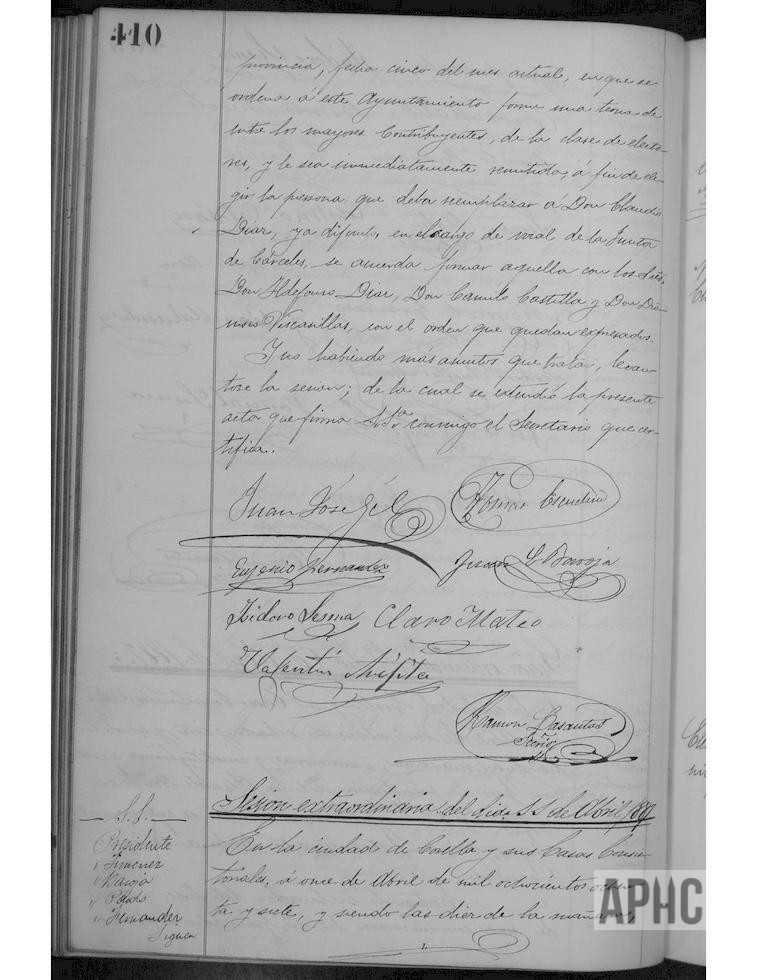 410
provincia, fecha cinco del mes actual, en que se
ordena á este Ayuntamiento forme una terna de
entre los mayores Contribuyentes, de la clase de electo-
res, y le sea inmediatamente remitida, á fin de ele-
gir la persona que deba reemplazar á Don Claudio
Diaz, ya difunto, en el cargo de vocal de la Junta
de Cárceles, se acuerda formar aquella con los Sres,
Don Ildefonso Diaz, Don Camilo Castilla y Don Dio-
nisio Virasillas, con el orden que quedan expresados.
Y no habiendo más asuntos que tratar, levan-
tose la sesion; de la cual se extendió la presente
acta que firma S.Sª conmigo el Secretario que cer-
tifica.
Juan José Gil
Tomas Escudero
Eugenio Hernandez
Isidoro Sesma
Claro Mateo
Valentin
Ramon Lasantas
Srio
Sesion extraordinaria del dia 11 de Abril, 1887
S.S.
Presidente
Jimenez
Baroja
Hernandez
Siguen
En la ciudad de Corella y sus Casas Consis-
toriales, á once de Abril de mil ochocientos ochen-
ta y siete, y siendo las diez de la mañana,
APHC